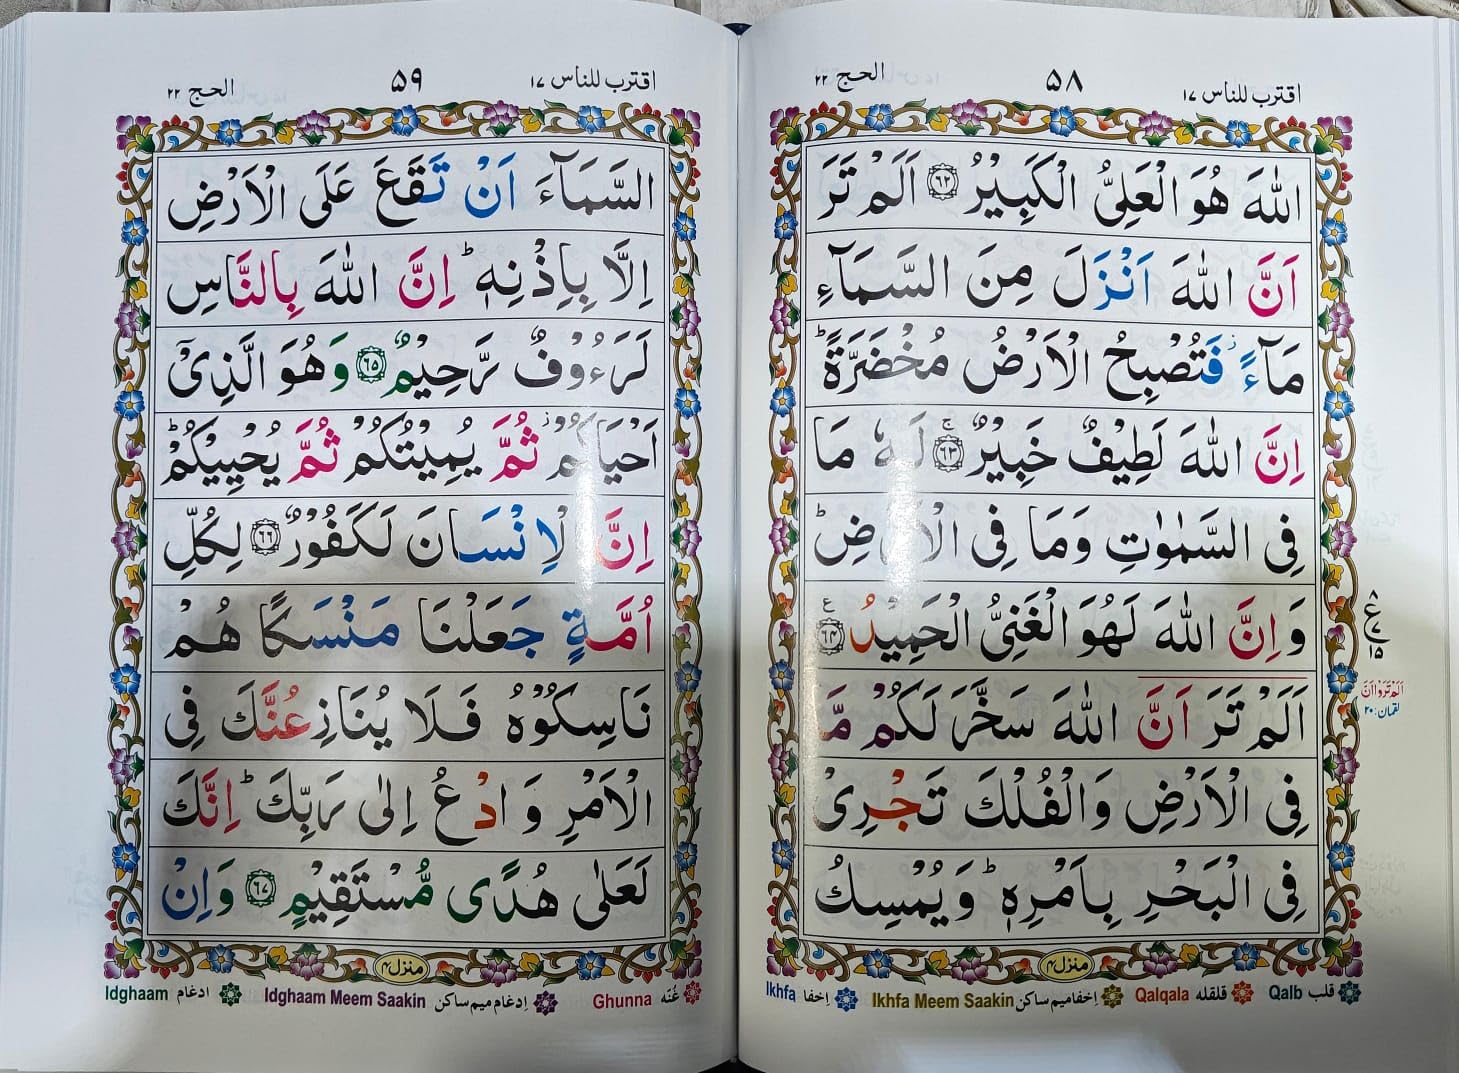 اقترب للناس ١٧
۵۸
الحج ٢٢
اللّٰهَ هُوَ الْعَلِيُّ الْكَبِيْرُ ﴿٦٢﴾ اَلَمْ تَرَ
اَنَّ اللّٰهَ اَنْزَلَ مِنَ السَّمَآءِ
مَآءً ؗ فَتُصْبِحُ الْاَرْضُ مُخْضَرَّةً ؕ
اِنَّ اللّٰهَ لَطِيْفٌ خَبِيْرٌ ﴿٦٣﴾ۚ لَهٗ مَا
فِى السَّمٰوٰتِ وَمَا فِى الْاَرْضِ ؕ
وَاِنَّ اللّٰهَ لَهُوَ الْغَنِيُّ الْحَمِيْدُ ﴿٦٤﴾ ع
اَلَمْ تَرَ اَنَّ اللّٰهَ سَخَّرَ لَكُمْ مَّا
فِى الْاَرْضِ وَالْفُلْكَ تَجْرِىْ
فِى الْبَحْرِ بِاَمْرِهٖ ؕ وَيُمْسِكُ
منزل ٤
٨
ع
٧
١٥
اَلَمْ تَرَوْا اَنَّ
لقمان: ٢٠
قلب Qalb
قلقله Qalqala
اِخفا ميم ساكن Ikhfa Meem Saakin
اِخفا Ikhfa
اقترب للناس ١٧
۵۹
الحج ٢٢
السَّمَآءَ اَنْ تَقَعَ عَلَى الْاَرْضِ
اِلَّا بِاِذْنِهٖ ؕ اِنَّ اللّٰهَ بِالنَّاسِ
لَرَءُوْفٌ رَّحِيْمٌ ﴿٦٥﴾ وَهُوَ الَّذِىْۤ
اَحْيَاكُمْ ؗ ثُمَّ يُمِيْتُكُمْ ثُمَّ يُحْيِيْكُمْ ؕ
اِنَّ الْاِنْسَانَ لَكَفُوْرٌ ﴿٦٦﴾ لِكُلِّ
اُمَّةٍ جَعَلْنَا مَنْسَكًا هُمْ
نَاسِكُوْهُ فَلَا يُنَازِعُنَّكَ فِى
الْاَمْرِ وَادْعُ اِلٰى رَبِّكَ ؕ اِنَّكَ
لَعَلٰى هُدًى مُّسْتَقِيْمٍ ﴿٦٧﴾ وَاِنْ
منزل ٤
غُنّه Ghunna
اِدغام ميم ساكن Idghaam Meem Saakin
ادغام Idghaam